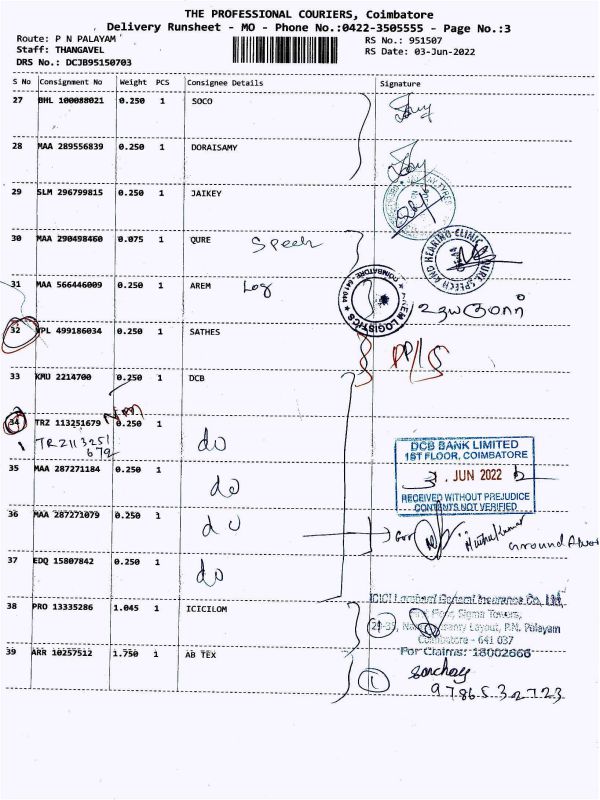 THE PROFESSIONAL COURIERS, Coimbatore
Delivery Runsheet - MO - Phone No.:0422-3505555 - Page No.:3
Route: P N PALAYAM
RS No.: 951507
Staff: THANGAVEL
RS Date: 03-Jun-2022
DRS No.: DCJB95150703
S No Consignment No Weight PCS Consignee Details Signature
27 BHL 100088021 0.250 1 SOCO
28 MAA 289556839 0.250 1 DORAISAMY
29 SLM 296799815 0.250 1 JAIKEY
30 MAA 290498460 0.075 1 QURE Speech
31 MAA 566446009 0.250 1 AREM Log
AREM LOGISTICS
COIMBATORE - 641 044
உதயகுமார்
32 VPL 499186034 0.250 1 SATHES
33 KMU 2214700 0.250 1 DCB
34 TRZ 113251679 0.250 1 do
TRZ113251
679
DCB BANK LIMITED
1ST FLOOR, COIMBATORE
3 . JUN 2022
RECEIVED WITHOUT PREJUDICE
CONTENTS NOT VERIFIED
35 MAA 287271184 0.250 1 do
36 MAA 287271079 0.250 1 do
Muthukumar
37 EDQ 15807842 0.250 1 do
38 PRO 13335286 1.045 1 ICICILOM
ICICI Lombard General Insurance Co. Ltd.
Sigma Towers,
Layout, P.N. Palayam
Coimbatore - 641 037
For Claims: 18002666
39 ARR 10257512 1.750 1 AB TEX
1
9786532723